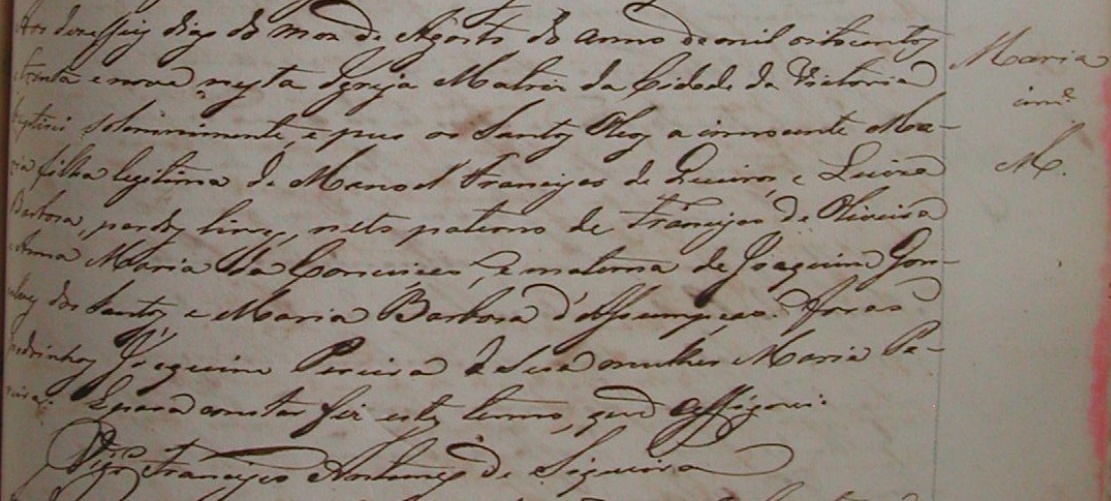 Aos desasseis dias do mez de Agosto do anno de mil oitocentos
trenta e nove nesta Igreja Matriz da Cidade da Victoria
baptisei solemnimente, e pus os Santos Oleos a innocente Ma-
ria filha legitima de Manoel Francisco de Queiros, e Luiza
Barbosa, pardos livres, neta paterna de Francisco de Oliveira
e Anna Maria da Conceicaõ, e materna de Joaquim Gon-
salves dos Santos, e Maria Barbosa d'Assumpcaõ. Foraõ
padrinhos Joaquim Pereira e sua mulher Maria Pe-
reira. E para constar fiz este termo, que assignei.
Vigr.o Francisco Antunes de Siqueira
Maria
inn.e
M.